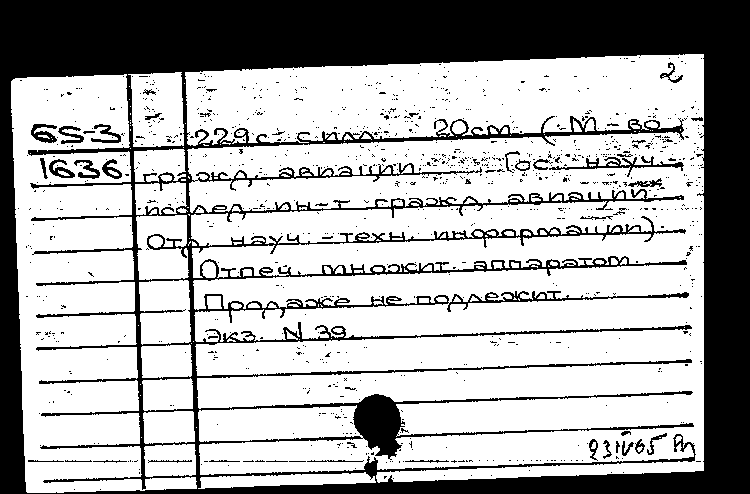 2
65-3 229с. с илл. 20см. (М-во
1636 гражд. авиации. Гос. науч.-
исслед. ин-т гражд. авиации.
Отд. науч.-техн. информации).
Отпеч. множит. аппаратом.
Продаже не подлежит.
Экз. N 39.